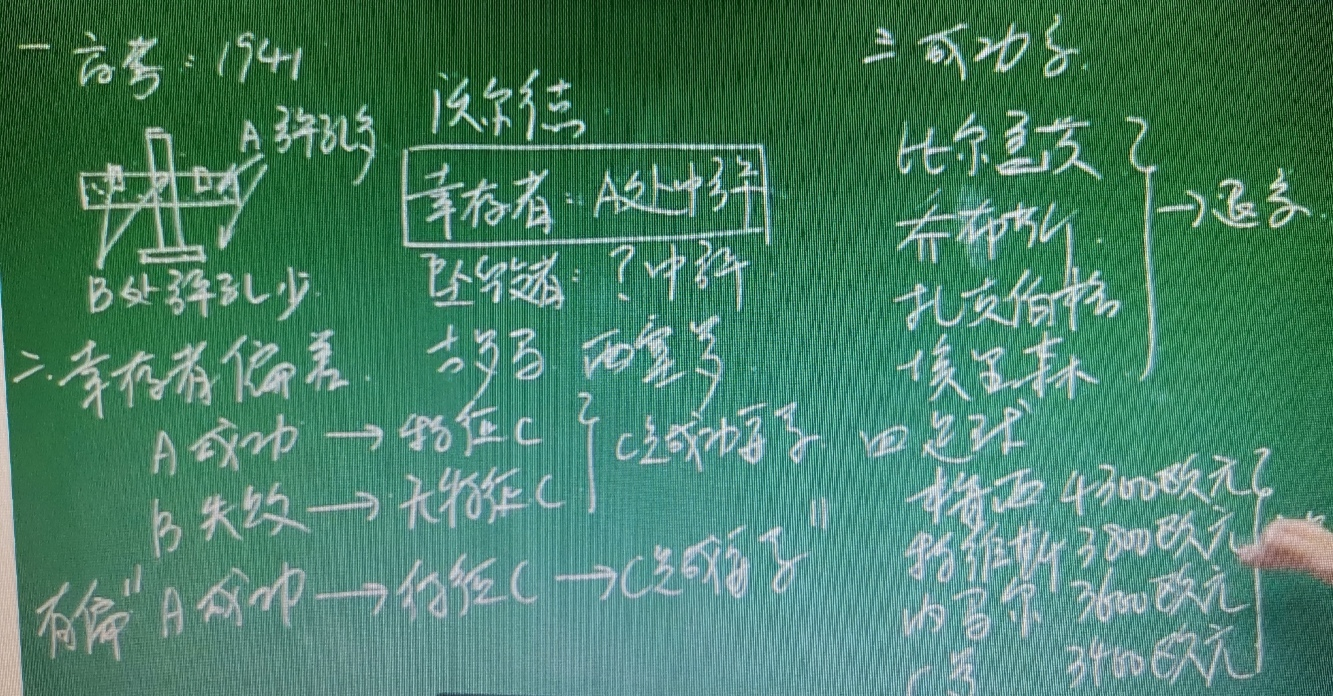 一
: 1941
A 弹孔多
B处弹孔少
沃尔德
幸存者：A处中弹
坠毁者：？中弹
二.幸存者偏差.
A 成功 → 特征C
B 失败 → 无特征C
C是成功因子
有偏"A 成功 → 特征C → C是成功因子"
三 成功学.
比尔盖茨
乔布斯
扎克伯格
埃里森
→退学.
四 足球
梅西 4300欧元
特维斯 3800欧元
内马尔 3600欧元
C罗 3400欧元